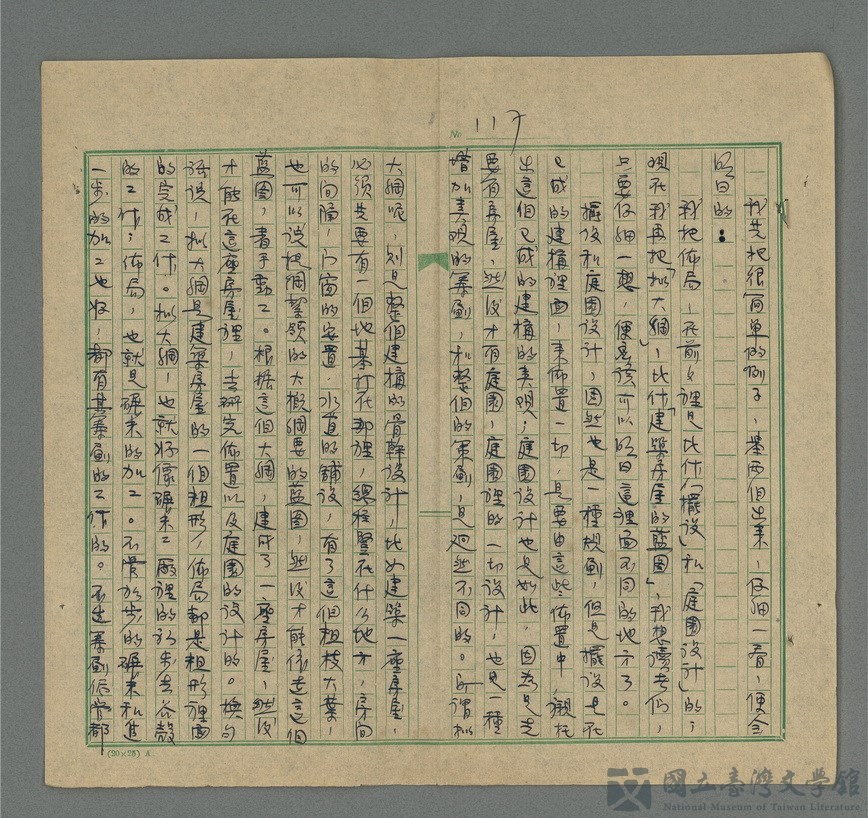 No 117
我先把很簡單的例子，舉兩個出來，仔細一看，便會
明白的：
我把佈局，在前文裡是比作「擺設」和「庭園設計」的；
現在我再把「擬大綱」，比作「建築房屋的藍圖」，我想讀者們，
只要仔細一想，便應該可以明白這裡面不同的地方了。
擺設和庭園設計，固然也是一種規劃，但是擺設是在
已成的建構裡面，來佈置一切，是要由這些佈置中，襯托
出這個已成的建構的美觀；庭園設計也是如此，因為是先
要有房屋，然後才有庭園，庭園裡的一切設計，也是一種
增加美觀的籌劃，和整個的策劃，是廻然不同的。所謂擬
大綱呢，則是整個建構的骨幹設計，比如建築一座房屋，
必須先要有一個地基打在那裡，樑柱豎在什么地方，房间
的间隔，门窗的安置，水道的舖設，有了這個粗枝大葉，
也可以说提綱挈領的大概綱要的藍图，然後才能依造這個
藍图，着手動工。根据這個大綱，建成了一座房屋，然後
才能在這座房屋裡，去研究佈置以及庭園的设计的。换句
话说，擬大綱是建築房屋的一個粗形，佈局都是粗形裡面
的完成工作。擬大綱，也就好像碾米工廠裡的初步去谷殼
的工作；佈局，也就是碾米的加工。不管初步的碾米和進
一步的加工也好，都有其籌劃的工作的。不过籌劃儘管都
(20×25) A
國立臺灣文學館
National Museum of Taiwan Literature